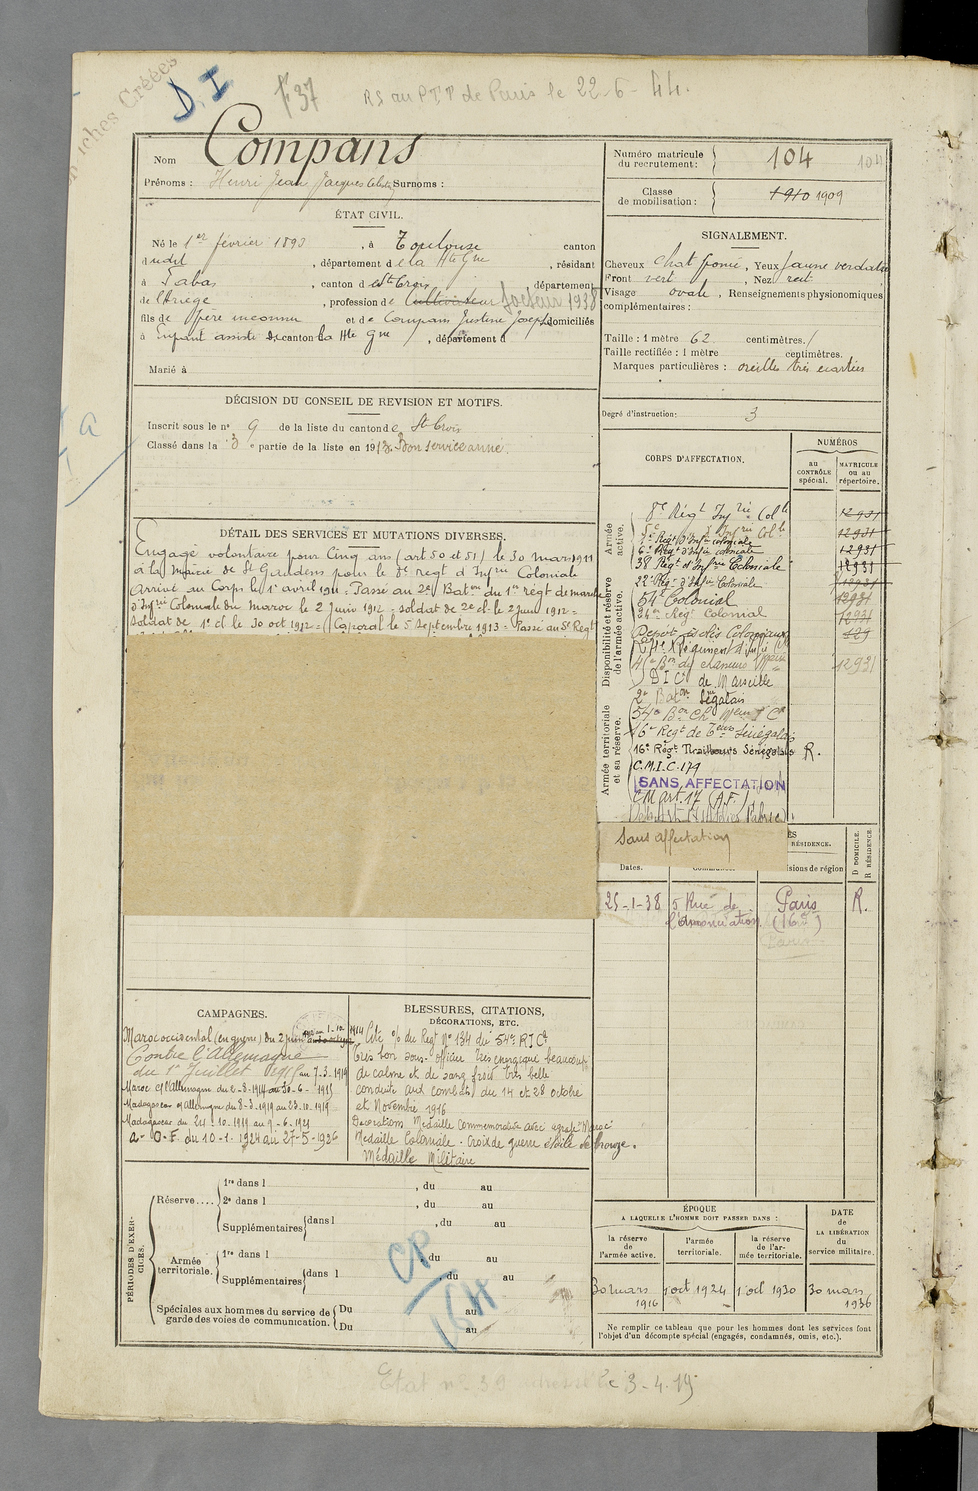 D.I
F37
RS au PTT de Paris le 22-6-44.
Nom Compans
Prénoms : Henri Jean Jacques Surnoms :
ÉTAT CIVIL.
Né le 1er février 1893, à Toulouse canton
dudit, département de la Hte Gne, résidant
à Fabas, canton de Ste Croix département
de l'Ariège, profession de Cultivateur facteur 1938
fils de Père inconnu et de Compans Justine Joseph domiciliés
à Enfant assisté de canton la Hte Gne, département d
Marié à
DÉCISION DU CONSEIL DE REVISION ET MOTIFS.
Inscrit sous le n° 9 de la liste du canton de St Croix
Classé dans la 3e partie de la liste en 1913. Bon service armé.
DÉTAIL DES SERVICES ET MUTATIONS DIVERSES.
Engagé volontaire pour Cinq ans (art 50 et 51) le 30 mars 1911
à la Mairie de St Gaudens pour le 8e regt d'Infrie Coloniale
Arrivé au Corps le 1er avril 1911 = Passé au 2e Baton du 1er régt de marche
d'Infrie Coloniale du Maroc le 2 Juin 1912 = soldat de 2e cl. le 2 juin 1912 =
Soldat de 1e cl le 30 oct 1912 = Caporal le 5 Septembre 1913 = Passé au 5e Regt
Numéro matricule du recrutement : 104 104
Classe de mobilisation : 1910 1909
SIGNALEMENT.
Cheveux chat foncé, Yeux jaune verdatre
Front vert, Nez rect
Visage ovale, Renseignements physionomiques
complémentaires :
Taille : 1 mètre 62 centimètres.
Taille rectifiée : 1 mètre centimètres.
Marques particulières : oreilles très écartées
Degré d'instruction : 3
CORPS D'AFFECTATION.
NUMÉROS
au CONTRÔLE spécial.
MATRICULE ou au répertoire.
Armée active.
Disponibilité et réserve de l'armée active.
Armée territoriale et sa réserve.
8e Régt Infrie Colle 12931
5e Régt d'Infie coloniale 12931
6e Régt d'Infie coloniale 12931
38 Régt d'Infrie Coloniale 12931
22e Régt d'Infie Coloniale 12931
54e Colonial 12931
24e Reg Colonial 12931
Depot des Isolés Coloniaux 429
12931
D I C de Marseille
2e Baton Ségalais
16e Regt de Teurs Sénégalais
16e Régt Tirailleurs Sénégalais R.
C.M.I.C. 179
SANS AFFECTATION
CM art. 17 (A.F.)
Sans affectation
RÉSIDENCE.
Dates.
Subdivisions de région
D DOMICILE. R RÉSIDENCE.
25-1-38 5 Rue de l'Annonciation Paris (16e) R.
CAMPAGNES.
Maroc occidental (en guerre) du 2 juin
Contre l'Allemagne
du 1er Juillet 1915 au 7-3-1919
Maroc et Allemagne du 2-8-1914 au 30-6-1915
Madagascar et Allemagne du 8-3-1919 au 23-10-1919
Madagascar du 24-10-1919 au 9-6-1921
A.O.F. du 10-1-1924 au 27-5-1926
BLESSURES, CITATIONS, DÉCORATIONS, ETC.
Cité o/ du Regt N° 134 du 54e RICl
Très bon sous-officier très energique beaucoup
de calme et de sang froid très belle
conduite aux combats du 14 et 28 octobre
et Novembre 1916
Decorations Medaille Commemorative avec agrafe Maroc
Medaille Coloniale - Croix de guerre étoile de bronze.
Médaille Militaire
PÉRIODES D'EXERCICES.
Réserve....
1re dans l , du au
2e dans l , du au
Supplémentaires dans l , du au
Armée territoriale.
1re dans l , du au
Supplémentaires dans l , du au
Spéciales aux hommes du service de garde des voies de communication. Du au
Du au
CP
16H
ÉPOQUE
A LAQUELLE L'HOMME DOIT PASSER DANS :
la réserve de l'armée active.
l'armée territoriale.
la réserve de l'armée territoriale.
DATE DE LA LIBÉRATION du service militaire.
30 mars 1916
1 oct 1924
1 oct 1930
30 mars 1936
Ne remplir ce tableau que pour les hommes dont les services font
l'objet d'un décompte spécial (engagés, condamnés, omis, etc.).
Etat n° 30 adressé le 3-4-19